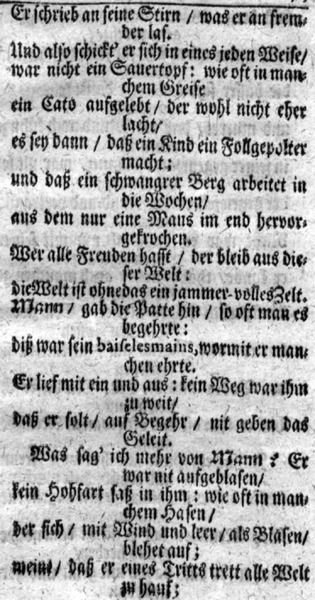 Er schrieb an seine Stirn / was er an frem-
der las.
Und also schickt' er sich in eines jeden Weise/
war nicht ein Sauertopf: wie oft in man-
chem Greise
ein Cato aufgelebt / der wohl nicht eher
lacht/
es sey dann / daß ein Kind ein Follgepolter
macht;
und daß ein schwangrer Berg arbeitet in
die Wochen/
aus dem nur eine Maus im end hervor-
gekrochen.
Wer alle Freuden hasst / der bleib aus die-
ser Welt:
die Welt ist ohnedas ein jammer-volles Zelt.
Mann / gab die Patte hin / so oft man es
begehrte:
diß war sein baiselesmains, wormit er man-
chen ehrte.
Er lief mit ein und aus: kein Weg war ihm
zu weit/
daß er solt / auf Begehr / nit geben das
Geleit.
Was sag' ich mehr von Mann? Er
war nit aufgeblasen/
kein Hohfart saß in ihm: wie oft in man-
chem Hasen /
der sich / mit Wind und leer / als Blasen/
blehet auf;
meint / daß er eines Tritts trett alle Welt
zu hauf;